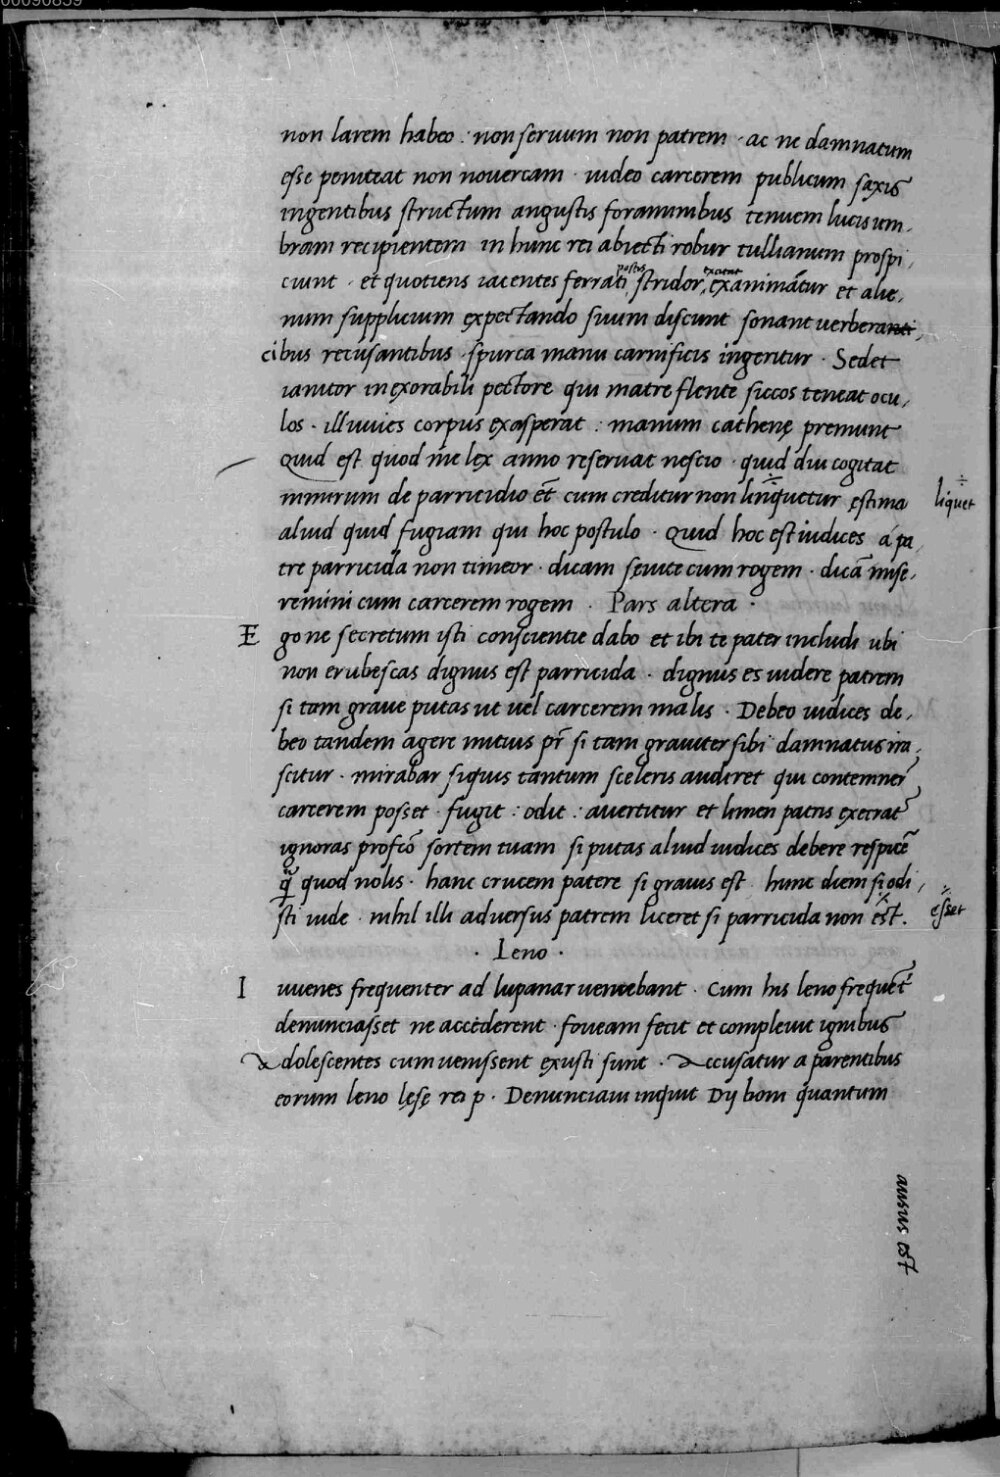 00090859
non larem habeo : non seruum non patrem · ac ne damnatum
esse peniteat non nouercam · uideo carcerem publicum saxis
ingentibus structum angustis foraminibus tenuem lucis um,
bram recipientem in hunc rei abiecti robur tullianum prospi,
ciunt · et quotiens iacentes ferrati postis stridor, excitat exanimātur et alie,
num supplicium expectando suum discunt sonant uerberanti,
cibus recusantibus · spurca manu carnificis ingeritur · Sedet
ianitor inexorabili pectore qui matre flente siccos teneat ocu,
los · illuuies corpus exasperat : manum cathenę premunt
Quid est quod me lex anno reseruat nescio · quid diu cogitat
nimirum de parricidio et̄ cum creditur non linquetur ęstima
liquet
aliud quid fugiam qui hoc postulo · Quid hoc est iudices á pa,
tre parricida non timeor · dicam sęuite cum rogem · dicā mise,
remini cum carcerem rogem · Pars altera ·
E gone secretum isti conscientie dabo et ibi te pater includi ubi
non erubescas dignus est parricida · dignus es uidere patrem
si tam graue putas ut uel carcerem malis · Debeo iudices de,
beo tandem agere mitius pr̄ si tam grauiter sibi damnatus ira,
scitur · mirabar siquis tantum sceleris audiret qui contemner̄
carcerem posset · fugit : odit : auertitur et limen patris execrat̄
ignoras profcō sortem tuam si putas aliud iudices debere respicē
q̄ quod nolis · hanc crucem patere si grauis est hunc diem si odi,
sti uide · nihil illi aduersus patrem liceret si parricida non est.
esset
· Leno ·
I uuenes frequenter ad lupanar ueniebant · Cum his leno frequēt
denunciasset ne accederent · foueam fecit et compleuit ignibus
Adolescentes cum uenissent exusti sunt · Accusatur a parentibus
eorum leno lęsę rei p · Denunciaui inquit Dij boni quantum
ausus est